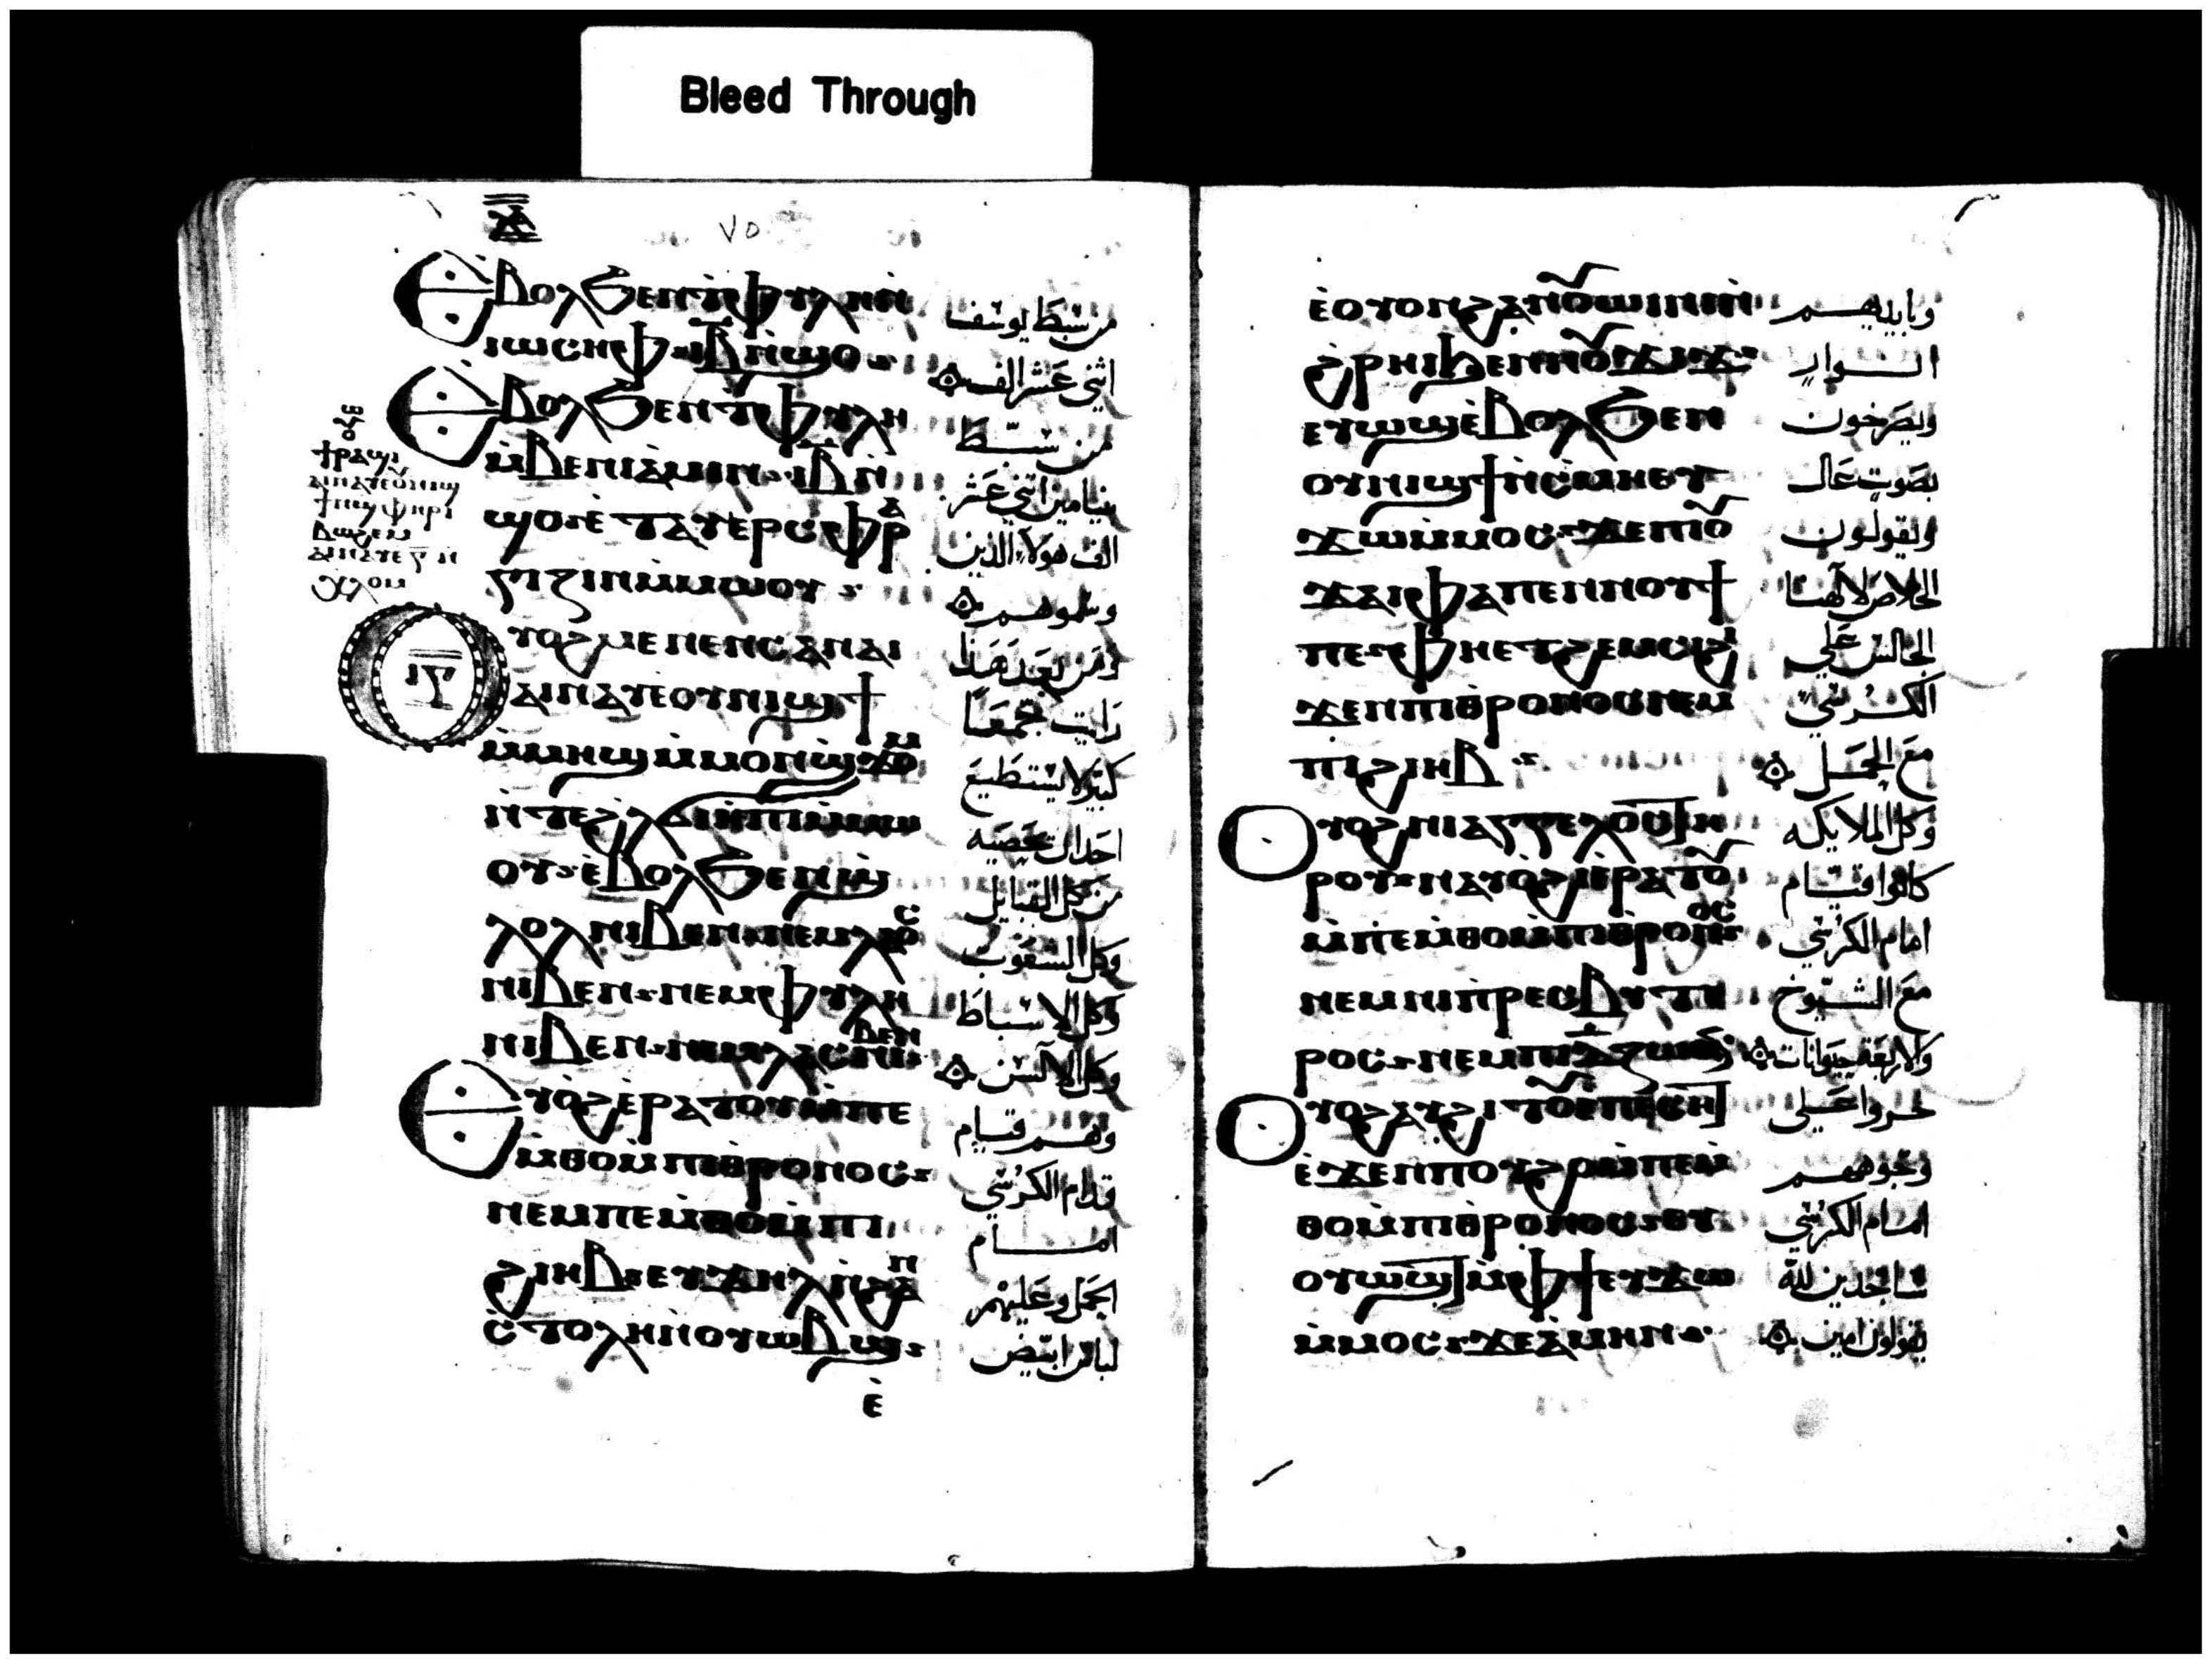 Bleed Through
ⲉ̀ⲃⲟⲗϧⲉⲛⲧ̀ⲫⲩⲗⲏⲛ̀
ⲓⲱⲥⲏⲫ ⲓ̅ⲃ̅ⲛ̀ϣⲟ
ⲉ̀ⲃⲟⲗϧⲉⲛⲧ̀ⲫⲩⲗⲏ
ⲙ̀ⲃⲉⲛⲓⲁⲙⲓⲛ ⲓ̅ⲃ̅ⲛ̀
ϣⲟ ⲉ̀ⲧⲁⲩⲉⲣⲥⲫⲣⲁ
ⲅⲓⲍⲓⲛⲙ̀ⲙⲱⲟⲩ
ⲟⲩⲟϩ ⲙⲉⲛⲉⲛⲥⲁⲛⲁⲓ
ⲁⲓⲛⲁⲩⲉⲟⲩⲛⲓϣϯ
ⲙ̀ⲙⲏϣⲙ̀ⲙⲟⲛϣϫⲟⲙ
ⲟⲩ ⲉ̀ⲃⲟⲗϧⲉⲛϣ̀
ⲗⲟⲗⲛⲓⲃⲉⲛ ⲛⲉⲙⲗⲁⲟⲥ
ⲛⲓⲃⲉⲛ ⲛⲉⲙⲫⲩⲗⲏ
ⲛⲓⲃⲉⲛ ⲛⲉⲙⲗⲁⲥⲛⲓⲃⲉⲛ
ⲉⲩⲟϩⲓⲉⲣⲁⲧⲟⲩⲙ̀ⲡⲉ
ⲙ̀ⲑⲟⲙ̀ⲡⲓⲑⲣⲟⲛⲟⲥ
ⲛⲉⲙⲡⲉⲙ̀ⲑⲟⲙ̀ⲡⲓ
ϩⲓⲏⲃ ⲉⲩϫⲏⲗⲛ̀ϩⲁⲛ
ⲥ̀ⲧⲟⲗⲏⲛ̀ⲟⲩⲱⲃϣ
ⲉ̀
من سبط يوسف
اثني عشر الف
من سبط
بنيامين اثني عشر
الف هولاء الذين
وسموهم
ومن بعد هذا
رايت جمعاً
كثير لا يستطيع
احدا ان يحصيه
من كل القبايل
وكل الشعوب
وكل الاسباط
وكل الالسن
وهم قيام
قدام الكرسي
امام
الحمل وعليهم
لباس ابيض
ⲉ̀ⲟⲩⲟⲛϩⲁⲛⲟⲩⲱⲓⲛⲓⲛ̀
ϩ̀ⲣⲏⲓϧⲉⲛⲛⲟⲩϫⲓϫ
ⲉⲩⲱϣⲉ̀ⲃⲟⲗϧⲉⲛ
ⲟⲩⲛⲓϣϯⲛ̀ⲥⲙⲏⲉⲩ
ϫⲱⲙ̀ⲙⲟⲥ ϫⲉⲡⲓⲟⲩ
ϫⲁⲓⲫⲁⲡⲉⲛⲛⲟⲩϯ
ⲡⲉ ⲫⲏⲉⲧϩⲉⲙⲥⲓϩⲓ
ϫⲉⲛⲡⲓⲑⲣⲟⲛⲟⲥⲛⲉⲙ
ⲡⲓϩⲓⲏⲃ
ⲟⲩⲟϩⲛⲓⲁⲅⲅⲉⲗⲟⲥⲧⲏ
ⲣⲟⲩ ⲛⲁⲩⲟϩⲓⲉⲣⲁⲧⲟⲩ
ⲙ̀ⲡⲉⲙ̀ⲑⲟⲙ̀ⲡⲓⲑⲣⲟⲛⲟⲥ
ⲛⲉⲙⲛⲓⲡⲣⲉⲥⲃⲩⲧⲉ
ⲣⲟⲥ ⲛⲉⲙⲡⲓⲇ̅ⲛ̀ⲍⲱⲟⲛ
ⲟⲩⲟϩⲁⲩϩⲓⲧⲟⲩⲉⲡⲉⲥⲏⲧ
ⲉ̀ϫⲉⲛⲡⲟⲩϩⲟⲙ̀ⲡⲉⲙ̀
ⲑⲟⲙ̀ⲡⲓⲑⲣⲟⲛⲟⲥ ⲉⲩ
ⲟⲩⲱϣⲧⲙ̀ⲫϯⲉⲩϫⲱ
ⲙ̀ⲙⲟⲥ ϫⲉⲁ̀ⲙⲏⲛ
وبايديهم
انوار
ويصرخون
بصوت عال
ويقولون
الخلاص لالهنا
الجالس علي
الكرسي
مع الحمل
وكل الملايكه
كانوا قيام
امام الكرسي
مع الشيوخ
والاربعة حيوانات
خروا علي
وجوههم
امام الكرسي
ساجدين لله
يقولون امين